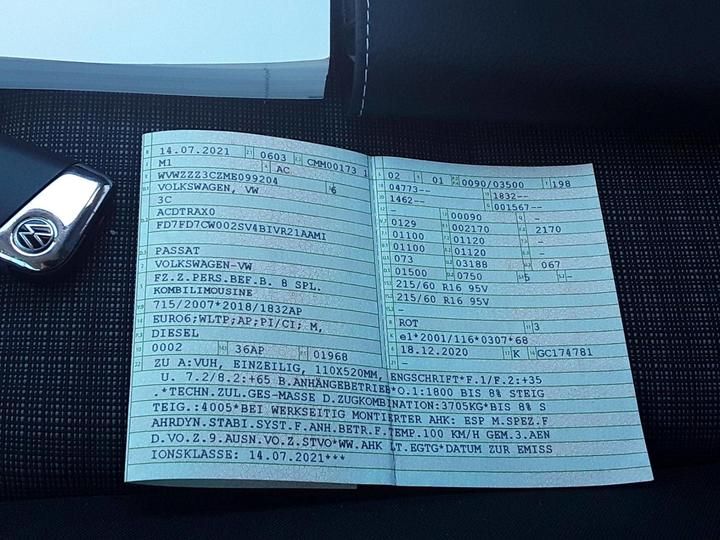 14.07.2021 0603 CMM00173 1
M1 AC
WVWZZZ3CZME099204
VOLKSWAGEN, VW 6
3C
ACDTRAX0
FD7FD7CW002SV4BIVR21AAMI
PASSAT
VOLKSWAGEN-VW
FZ.Z.PERS.BEF.B. 8 SPL.
KOMBILIMOUSINE
715/2007*2018/1832AP
EURO6;WLTP;AP;PI/CI; M,
DIESEL
0002 36AP 01968
02 01 0090/03500 198
04773-- 1832--
1462-- 001567--
00090 -
0129 002170 2170
01100 01120 -
01100 01120 -
073 03188 067
01500 0750 5 -
215/60 R16 95V
215/60 R16 95V
-
ROT 3
e1*2001/116*0307*68
18.12.2020 K GC174781
ZU A:VUH, EINZEILIG, 110X520MM, ENGSCHRIFT*F.1/F.2:+35
U. 7.2/8.2:+65 B.ANHÄNGEBETRIEB*O.1:1800 BIS 8% STEIG
.*TECHN.ZUL.GES-MASSE D.ZUGKOMBINATION:3705KG*BIS 8% S
TEIG.:4005*BEI WERKSEITIG MONTIERTER AHK: ESP M.SPEZ.F
AHRDYN.STABI.SYST.F.ANH.BETR.F.TEMP.100 KM/H GEM.3.AEN
D.VO.Z.9.AUSN.VO.Z.STVO*WW.AHK LT.EGTG*DATUM ZUR EMISS
IONSKLASSE: 14.07.2021***